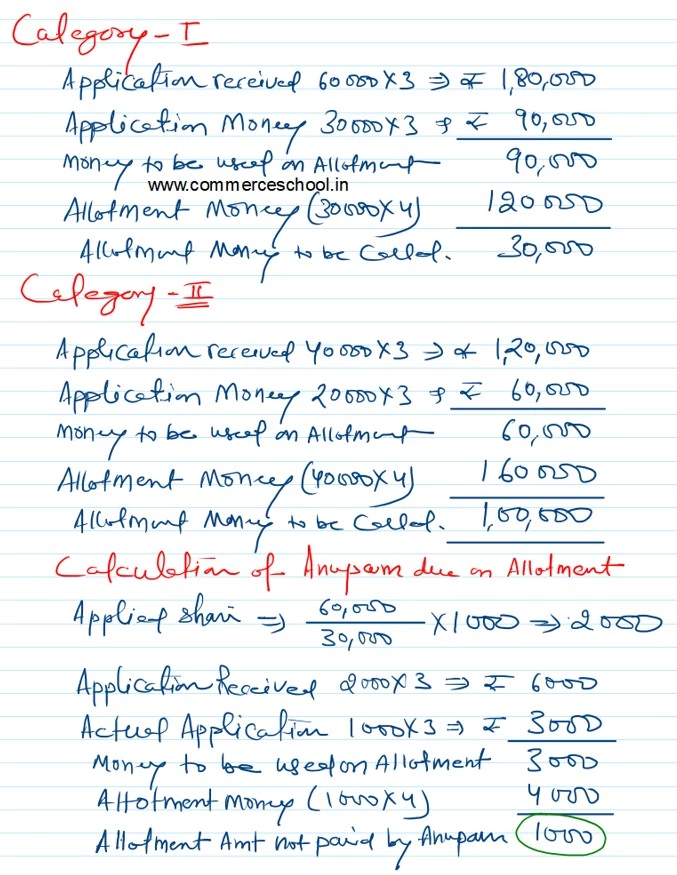 Category - I
Application received 60000 X 3 ⇒ ₹ 1,80,000
Application Money 30000 X 3 ⇒ ₹ 90,000
Money to be used on Allotment 90,000
www.commerceschool.in
Allotment Money (30000 X 4) 120000
Allotment Money to be Called. 30,000
Category - II
Application received 40000 X 3 ⇒ ₹ 1,20,000
Application Money 20000 X 3 ⇒ ₹ 60,000
Money to be used on Allotment 60,000
Allotment Money (40000 X 4) 160000
Allotment Money to be Called. 1,00,000
Calculation of Anupam due on Allotment
Applied share ⇒ 60,000/30,000 X 1000 ⇒ 2000
Application Received 2000 X 3 ⇒ ₹ 6000
Actual Application 1000 X 3 ⇒ ₹ 3000
Money to be used on Allotment 3000
Allotment Money (1000 X 4) 4000
Allotment Amt not paid by Anupam 1000